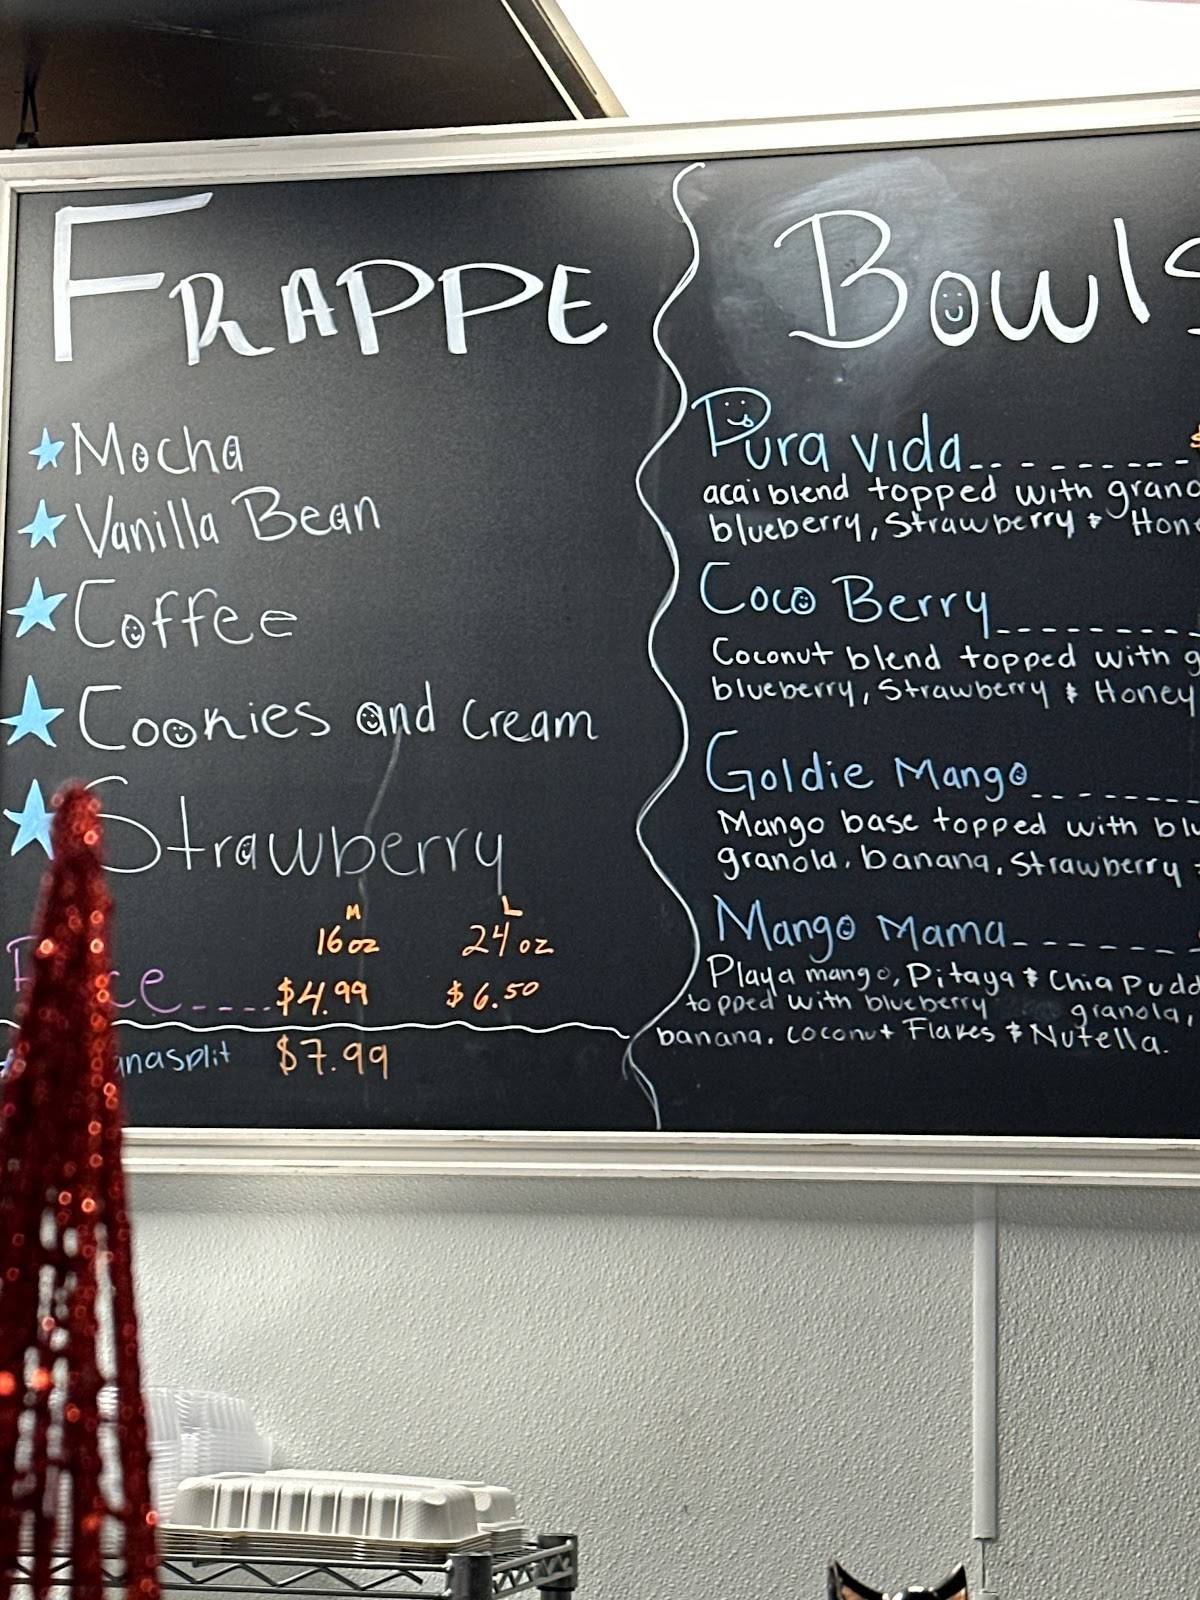 FRAPPE
Mocha
Vanilla Bean
Coffee
Cookies and Cream
Strawberry
M L
16oz 24oz
$4.99 $6.50
$7.99
Bowls
Pura vida
acai blend topped with
blueberry, Strawberry &
Coco Berry
Coconut blend topped with
blueberry, Strawberry & Honey
Goldie Mango
Mango base topped with
granola, banana, Strawberry
Mango Mama
Playa mango, Pitaya & Chia
topped with blueberry granola,
banana, coconut Flakes & Nutella.